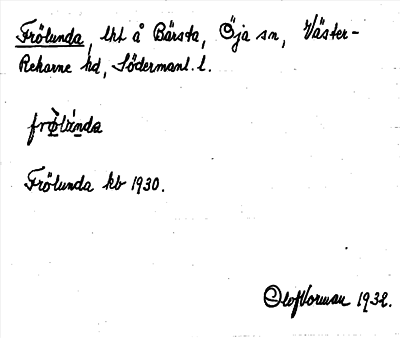 Frölunda, lht å Bärsta, Öja sn, Väster-
Rekarne hd, Södermanl. l.
frö̀lánda
Frölunda kb 1930.
Olof Norman 1932.